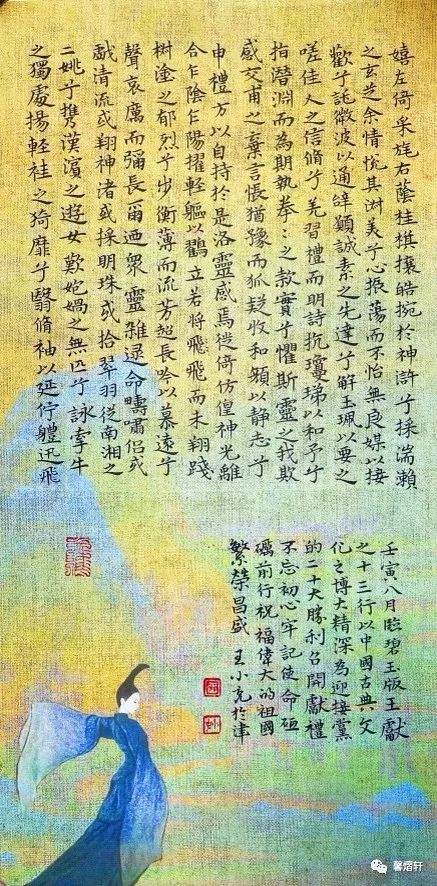 嬉左倚采旄右蔭桂棋攘皓捥於神滸兮採湍瀨
之玄芝余情悅其淑美兮心振蕩而不怡無良媒以接
歡兮託微波以通辝願誠素之先達兮解玉珮以要之
嗟佳人之信脩兮羌習禮而明詩抗瓊珶以和予兮
指潛淵而為期執拳〻之款實兮懼斯靈之我欺
感交甫之棄言悵猶豫而狐疑收和顏以静志兮
申禮方以自持於是洛靈感焉徙倚仿偟神光離
合乍陰乍陽擢輕軀以鶴立若將飛飛而未翔踐
樹塗之郁烈兮步衡薄而流芳超長吟以慕遠兮
聲哀厲而彌長爾迺衆靈雜遝命疇嘯侶或
戲清流或翔神渚或採明珠或拾翠羽從南湘之
二姚兮攜漢濱之遊女歎媧之無匹兮詠牽牛
之獨處揚輕袿之猗靡兮翳脩袖以延佇體迅飛
壬寅八月臨碧玉版王獻
之十三行以中國古典文
化之博大精深為迎接黨
的二十大勝利召開獻禮
不忘初心牢記使命砥
礪前行祝福偉大的祖國
繁榮昌盛 王小亮於津
馨熠轩